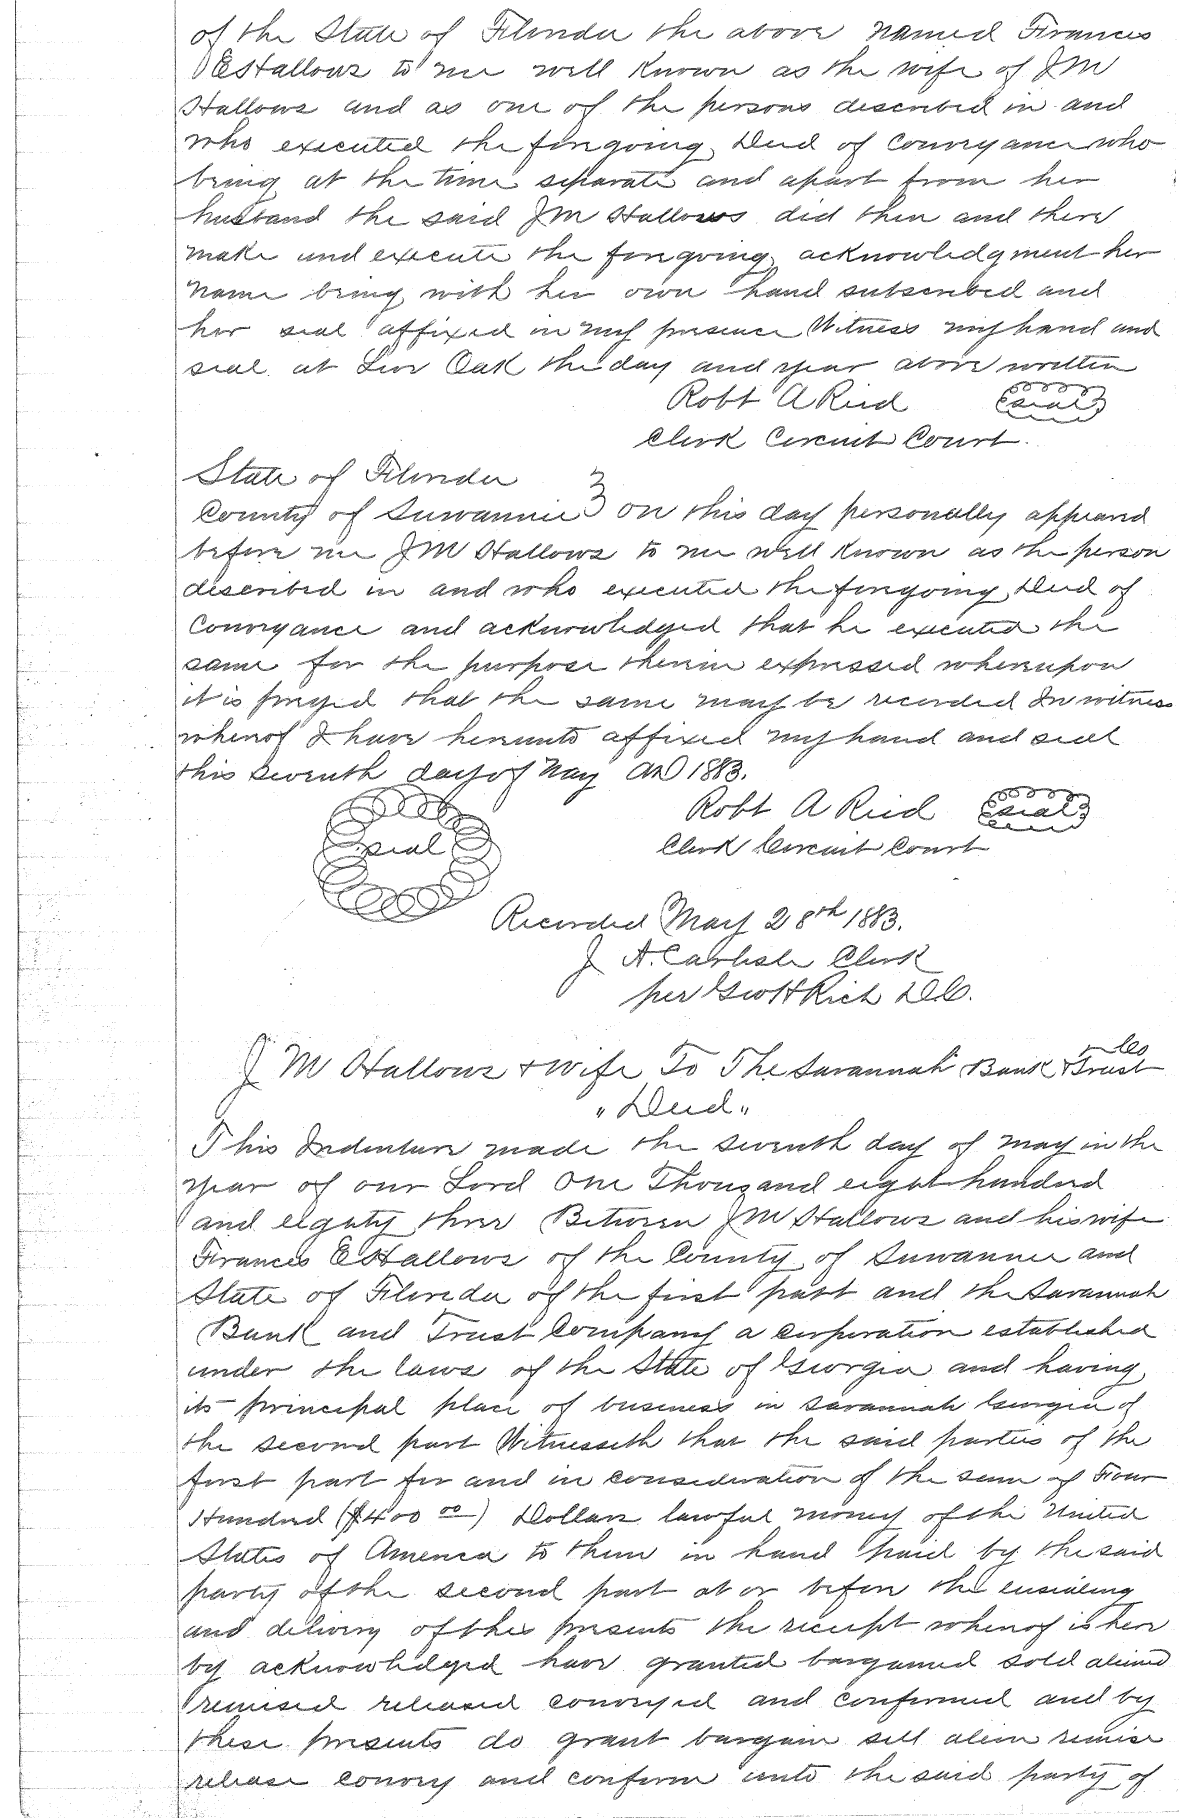 of the State of Florida the above named Frances
E Hallows to me well known as the wife of J M
Hallows and as one of the persons described in and
who executed the foregoing Deed of Conveyance who
being at the time separate and apart from her
husband the said J M Hallows did then and there
make and execute the foregoing acknowledgment her
name being with her own hand subscribed and
her seal affixed in my presence Witness my hand and
seal at Live Oak the day and year above written
Robt A Reid seal
Clerk Circuit Court.
State of Florida
County of Suwannee } on this day personally appeared
before me J M Hallows to me well known as the person
described in and who executed the foregoing Deed of
Conveyance and acknowledged that he executed the
same for the purpose therein expressed whereupon
it is prayed that the same may be recorded In witness
whereof I have hereunto affixed my hand and seal
this seventh day of May AD 1883.
Robt A Reid seal
seal Clerk Circuit Court
Recorded May 28th 1883.
J A. Carlisle Clerk
per Geo H Rich D.C.
J M Hallows & wife To The Savannah Bank & Trust Co
"Deed"
This Indenture made the seventh day of May in the
year of our Lord One Thousand eight hundred
and eighty three Between J M Hallows and his wife
Frances E Hallows of the County of Suwannee and
State of Florida of the first part and the Savannah
Bank and Trust Company a corporation established
under the laws of the State of Georgia and having
its principal place of business in Savannah Georgia of
the second part Witnesseth that the said parties of the
first part for and in consideration of the sum of Four
Hundred ($400 00) Dollars lawful money of the United
States of America to them in hand paid by the said
party of the second part at or before the ensealing
and delivery of these presents the receipt whereof is here
by acknowledged have granted bargained sold aliened
remised released conveyed and confirmed and by
these presents do grant bargain sell alien remise
release convey and confirm unto the said party of